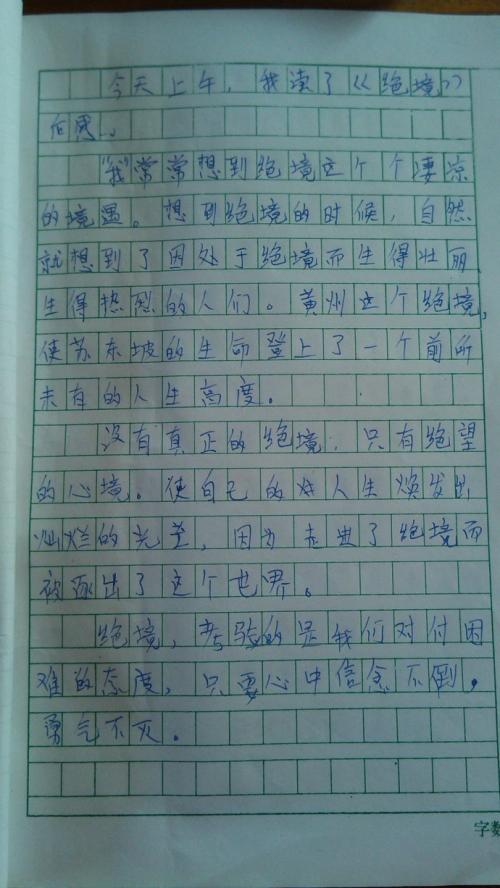 今天上午，我读了《绝境》
有感…
“我”常常想到绝境这个个凄凉
的境遇。想到绝境的时候，自然
就想到了因处于绝境而生得壮丽
生得热烈的人们。黄州这个绝境，
使苏东坡的生命登上了一个前所
未有的人生高度。
没有真正的绝境，只有绝望
的心境。使自己的人生焕发出
灿烂的光芒，因为走进了绝境而
被逐出了这个世界。
绝境，考验的是我们对付困
难的态度，只要心中信念不倒，
勇气不灭。
字数